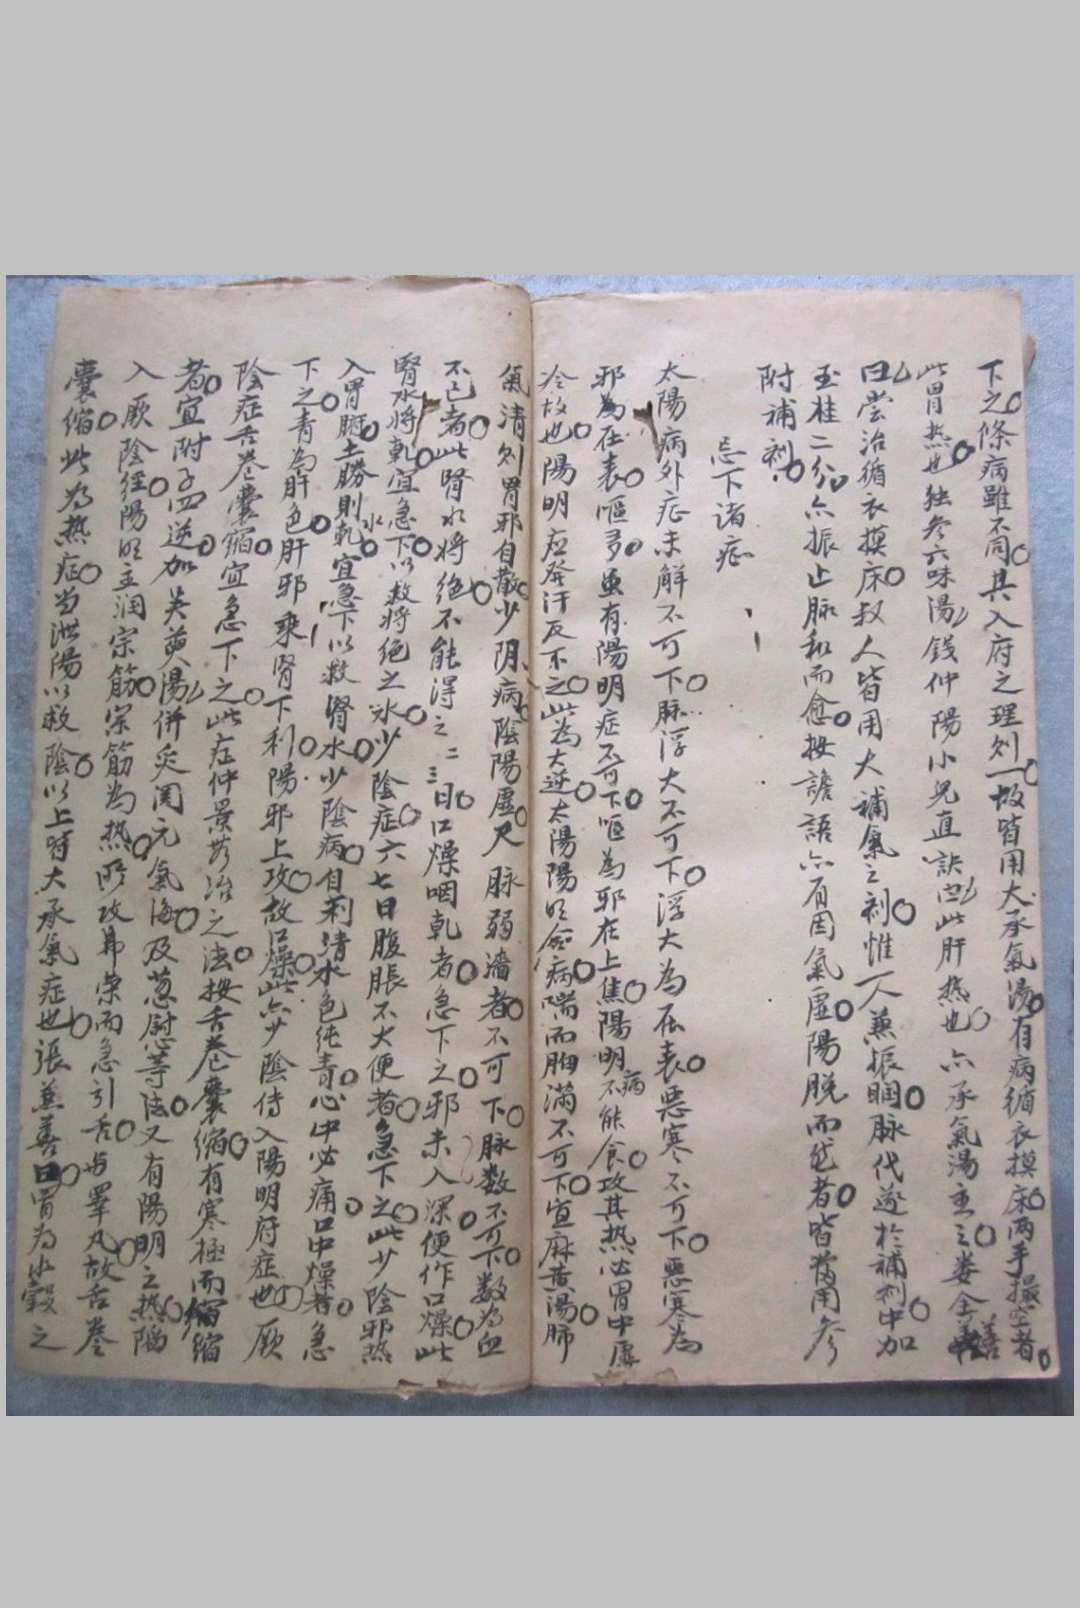 下之條病雖不同其入府之理則一故皆用大承氣湯有病循衣摸床两手撮空者
此胃热也独参六味湯錢仲陽小兒直訣此肝热也亦承氣湯主之娄全善
曰尝治循衣摸床数人皆用大補氣之剂惟一人兼振瞤脉代遂於補剂中加
玉桂二分亦振止脉和而愈按譫語亦有因氣虚陽脱而然者皆当用参
附補剂
忌下诸症
太陽病外症未解不可下脉浮大不可下浮大为在表惡寒不可下惡寒为
邪為在表嘔多虽有陽明症不可下嘔為邪在上焦陽明病不能食攻其热必胃中虚
冷故也陽明应發汗反下之此为大逆太陽陽明合病喘而胸满不可下宜麻黄湯肺
氣清则胃邪自散少阴病陰陽虚尺脉弱濇者不可下脉数不可下数为血
不已者此腎水将绝不能淂之二三日口燥咽乾者急下之邪未入深便作口燥此
腎水将乾宜急下以救将绝之水少陰症六七日腹脹不大便者急下之此少陰邪热
入胃腑土勝則水乾宜急下以救腎水少陰病自利清水色纯青心中必痛口中燥者急
下之青为肝色肝邪乘腎下利陽邪上攻故口燥此亦少陰傳入陽明府症也厥
陰症舌卷囊縮宜急下之此症仲景无治之法按舌卷囊縮有寒極而縮縮
者宜附子四逆加吴萸湯併炙関元氣海及葱慰等法又有陽明之热陷
入厥陰經陽明主润宗筋宗筋为热所攻弗荣而急引舌与睪丸故舌卷
囊縮此为热症当泄陽以救陰以上皆大承氣症也張兼善曰胃为水穀之